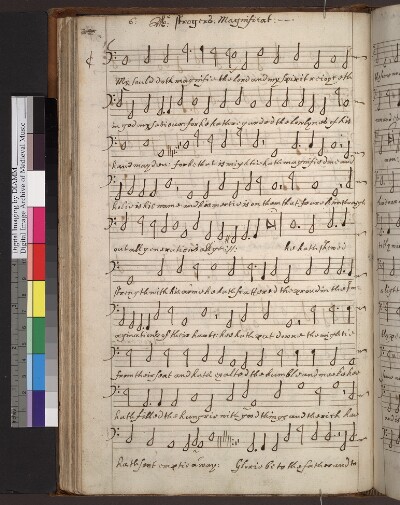 6. Mr. strogers. Magnificat:
My soule doth magnifie the lord and my spirit reioyseth
in god my saviour: for he hath regarded the lowlynes of his
handmayden: for he that is mightie hath magnified me and
holie is his name and his mercie is on them that feare him through
out all generations all ye :||: he hath shewed
strength with his arme he hath scattered the proud in the Im-
aginations of their harts: he hath put downe the mightie
from their seat and hath exalted the humble and meeke he
hath filled the hungrie with good things and the rich he
hath sent emptie away: Glorie be to the father and to
Digital Imaging by DIAMM
Digital Image Archive of Medieval Music